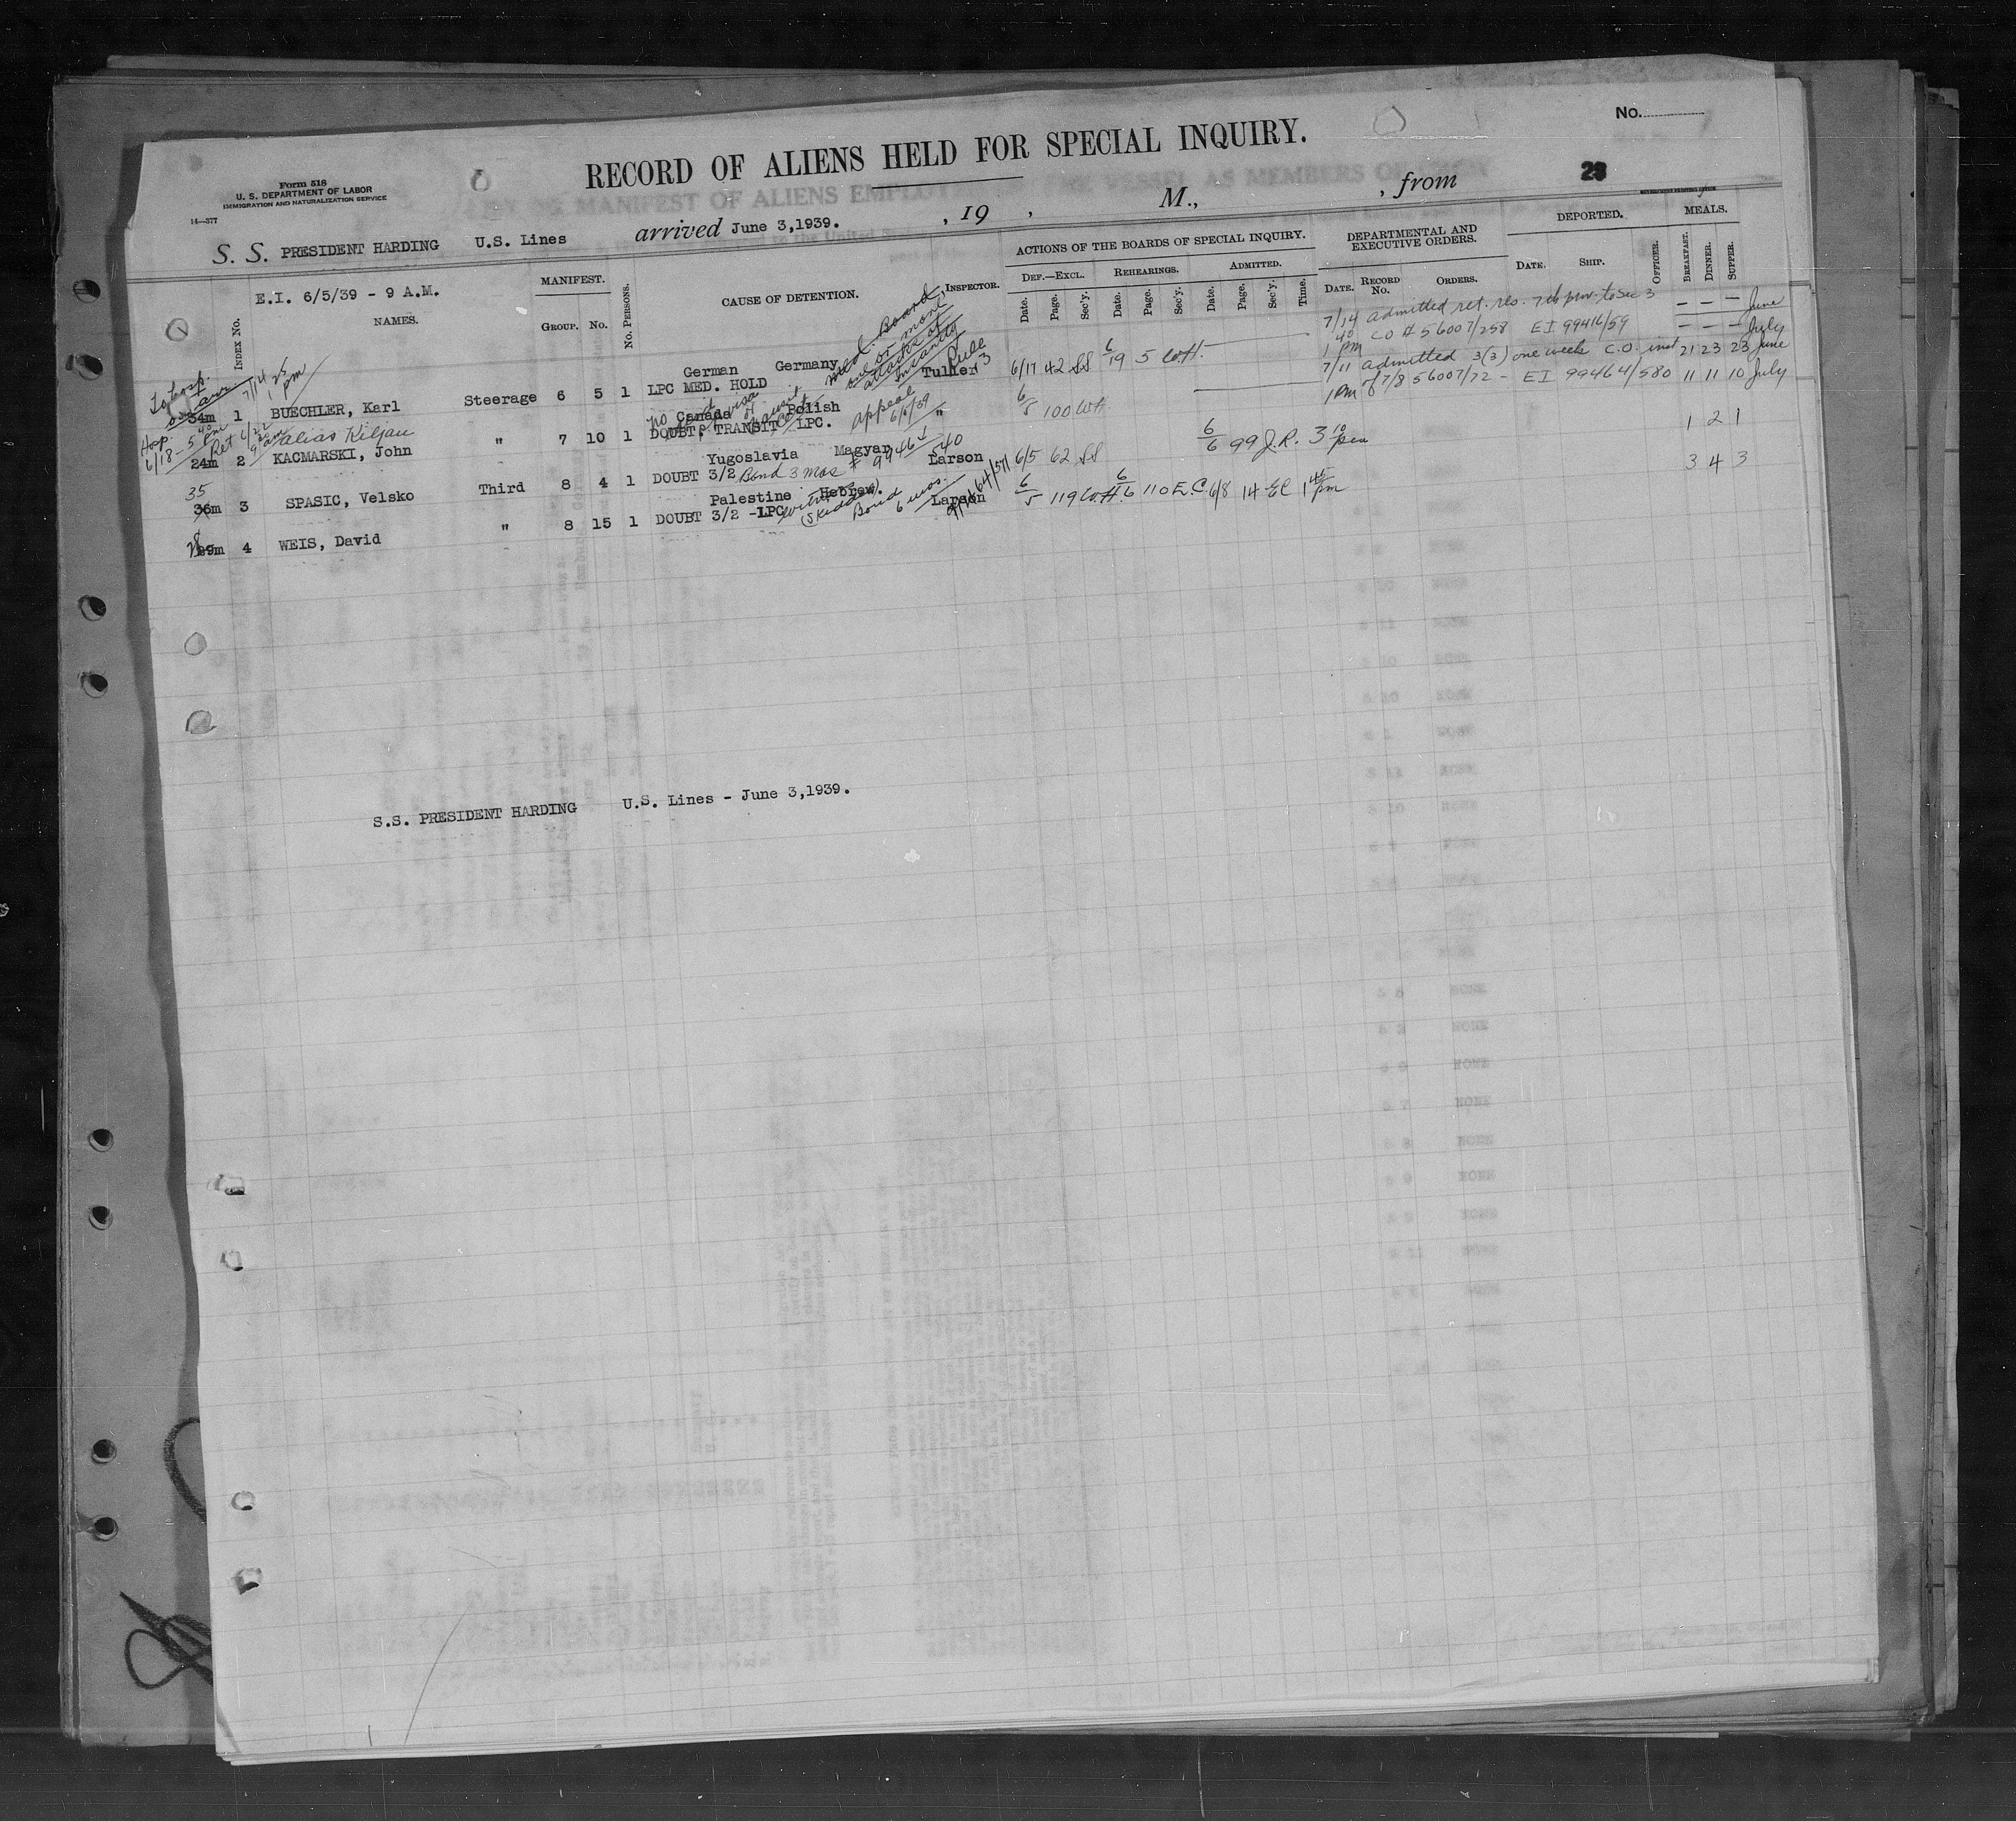 No.
RECORD OF ALIENS HELD FOR SPECIAL INQUIRY.
Form 518
U. S. DEPARTMENT OF LABOR
IMMIGRATION AND NATURALIZATION SERVICE
14—377
23
S. S. PRESIDENT HARDING U.S. Lines arrived June 3,1939. , 19 , M., , from
E.I. 6/5/39 - 9 A.M.
INDEX No. NAMES. MANIFEST. GROUP. No. No. PERSONS. CAUSE OF DETENTION. INSPECTOR.
ACTIONS OF THE BOARDS OF SPECIAL INQUIRY. DEPARTMENTAL AND EXECUTIVE ORDERS. DEPORTED. MEALS.
DEF.—EXCL. REHEARINGS. ADMITTED.
Date. Page. Sec'y. Date. Page. Sec'y. Date. Page. Sec'y. Time. DATE. RECORD No. ORDERS. DATE. SHIP. OFFICER. BREAKFAST. DINNER. SUPPER.
To hosp. on arr. 7/14 1 25 pm
Med. Board one or more attacks of insanity
Rule 13
German Germany
34m 1 BUECHLER, Karl Steerage 6 5 1 LPC MED. HOLD Tuller 6/17 42 SS 6/19 5 W.H.
7/14 admitted ret. res. 7th prov. to Sec 3 — — — June
1 40 pm CO # 56007/258 EI 99416/59 — — — July
Hosp. 6/18 - 5 40 pm Ret 6/22 9 20 am
alias Kiljan
Canada Polish
24m 2 KACMARSKI, John " 7 10 1 DOUBT, TRANSIT LPC. appeal 6/6/39 " 6/5 100 WH
7/11 admitted 3(3) one week C.O. inst 21 23 23 June
1 pm 7/8 56007/72 - EI 99464/580 11 11 10 July
Yugoslavia Magyar
35
36m 3 SPASIC, Velsko Third 8 4 1 DOUBT 3/2 Bond 3 mos # 99464/540 Larson 6/5 62 SS 6/6 99 J.R. 3 10 pm 1 2 1
Palestine Hebrew.
28
29m 4 WEIS, David " 8 15 1 DOUBT 3/2 -LPC Bond 6 mos. Larson 6/5 119 W.H. 6/6 110 E.C. 6/8 14 EC 1 45 pm 3 4 3
S.S. PRESIDENT HARDING U.S. Lines - June 3,1939.